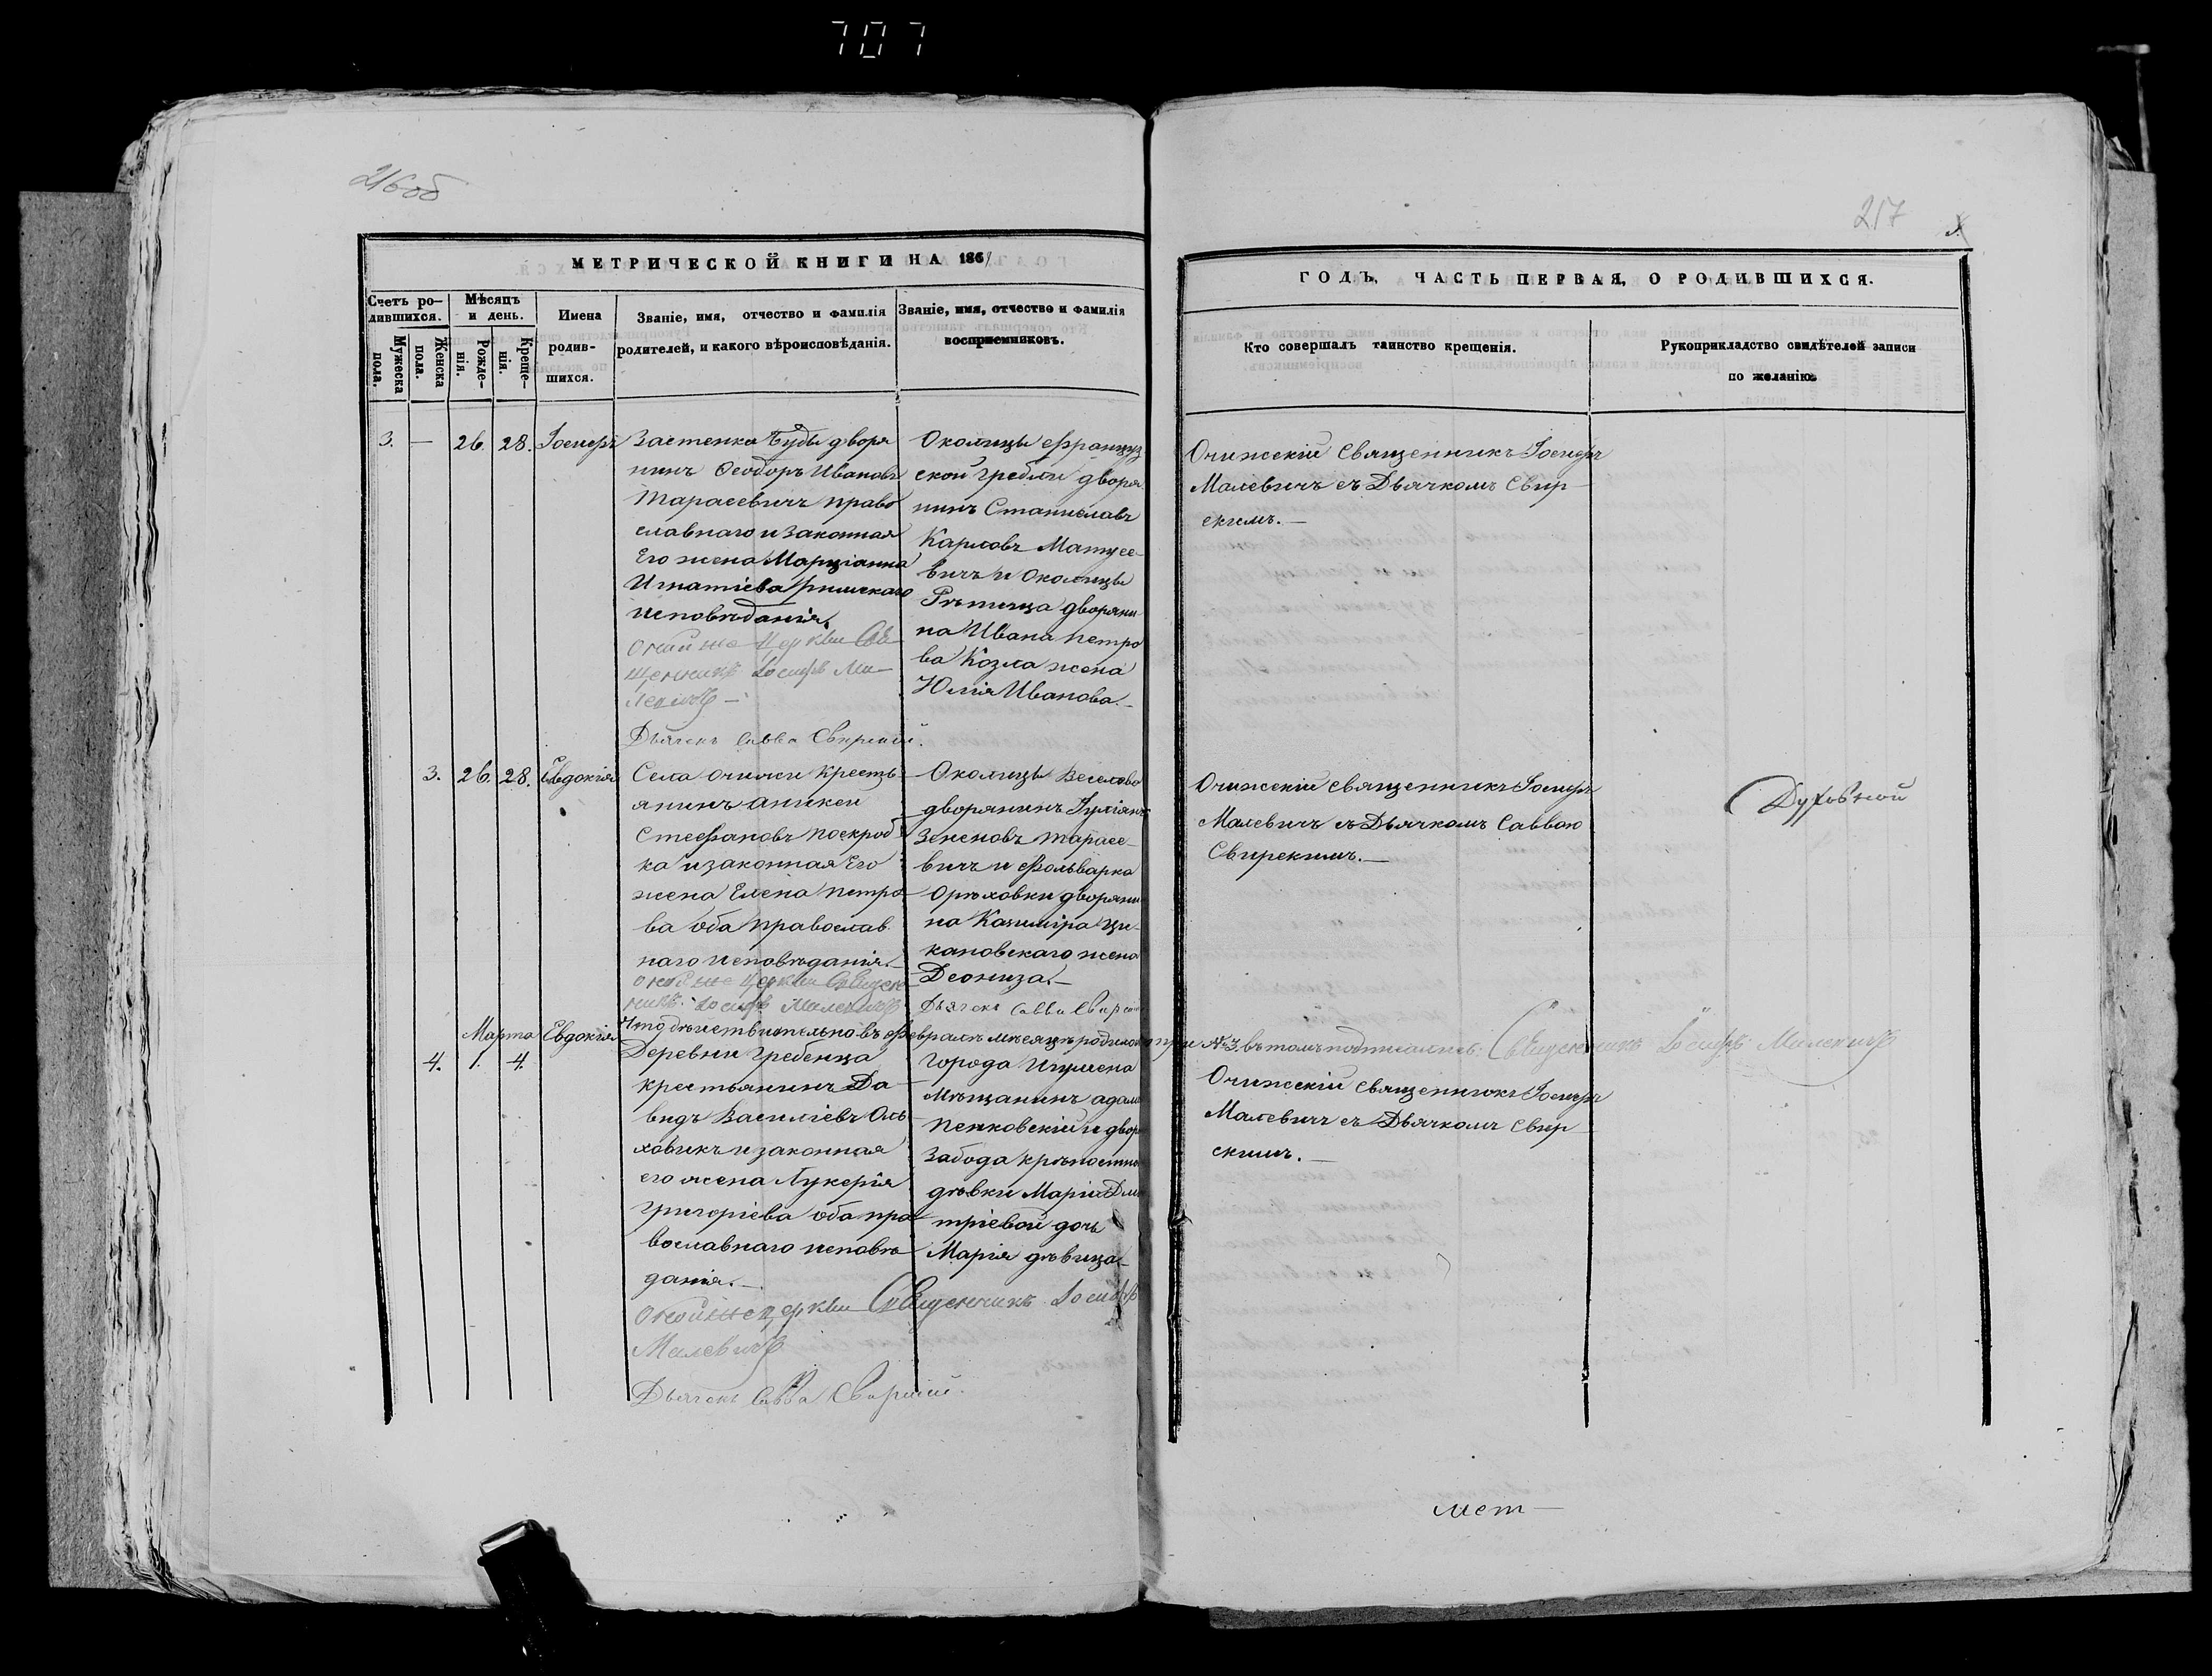 707
216 об
217
МЕТРИЧЕСКОЙ КНИГИ НА 1861
ГОДЪ, ЧАСТЬ ПЕРВАЯ, О РОДИВШИХСЯ.
Счетъ ро-
дившихся.
Мужеска
пола.
Женска
пола.
Мѣсяцъ
и день.
Рожде-
нія.
Креще-
нія.
Имена
родив-
шихся.
Званіе, имя, отчество и фамилія
родителей, и какого вѣроисповѣданія.
Званіе, имя, отчество и фамилія
восприемниковъ.
Кто совершалъ таинство крещенія.
Рукоприкладство свидѣтелей записи
по желанію.
3. — 26. 28. Іосифъ
Застенка Буды дворя
нинъ Феодоръ Ивановъ
Тарасевичъ право
славнаго и законная
Его жена Марціанна
Игнатіева римскаго
исповѣданія.
оной же Церкви Свя
щенникъ Іосифъ Ма-
левичъ —
Дьячекъ Савва Свирскій.
Околицы Француз
ской Гребли дворя
нинъ Станиславъ
Карловъ Матусе-
вичъ и Околицы
Рѣпища дворяни-
на Ивана Петро
ва Козла жена
Юлія Иванова.—
Очижскій Священникъ Іосифъ
Малевичъ съ Дьячкомъ Свир-
скимъ.—
3. 26. 28. Евдокія
Села Очижи Крестъ-
янинъ Аникей
Стефановъ Поскроб
ка и законная Его
жена Елена Петро
ва оба православ
наго исповѣданія.—
оной же Церкви Священ
никъ Іосифъ Малевичъ
Околицы Веселово
дворянинъ Іуліанъ
Зеноновъ Тарасе-
вичъ и Фольварка
Орѣховки дворяни
на Казиміра Ци-
кановскаго жена
Деониза.—
Дьячекъ Савва Свирскій
Очижскій Священникъ Іосифъ
Малевичъ съ Дьячкомъ Саввою
Свирскимъ.—
Духовной
Что дѣйствительно въ Февралѣ мѣсяцѣ родилось при №3. въ томъ подписались: Священникъ Іосифъ Малевичъ
Марта
4. 1. 4. Евдокія
Деревни Гребенца
крестьянинъ Да-
видъ Василіевъ Оль-
ховикъ и законная
его жена Лукерія
Григоріева оба пра
вославнаго исповѣ
данія.—
оной же церкви Священникъ Іосифъ
Малевичъ
Дьячекъ Савва Свирскій.
Города Игумена
Мѣщанинъ Адамъ
Пенковскій и двора
Забода крѣпостной
дѣвки Маріи Дми
тріевой дочь
Марія дѣвица—
Очижскій Священникъ Іосифъ
Малевичъ съ Дьячкомъ Свир-
скимъ.—
мет—